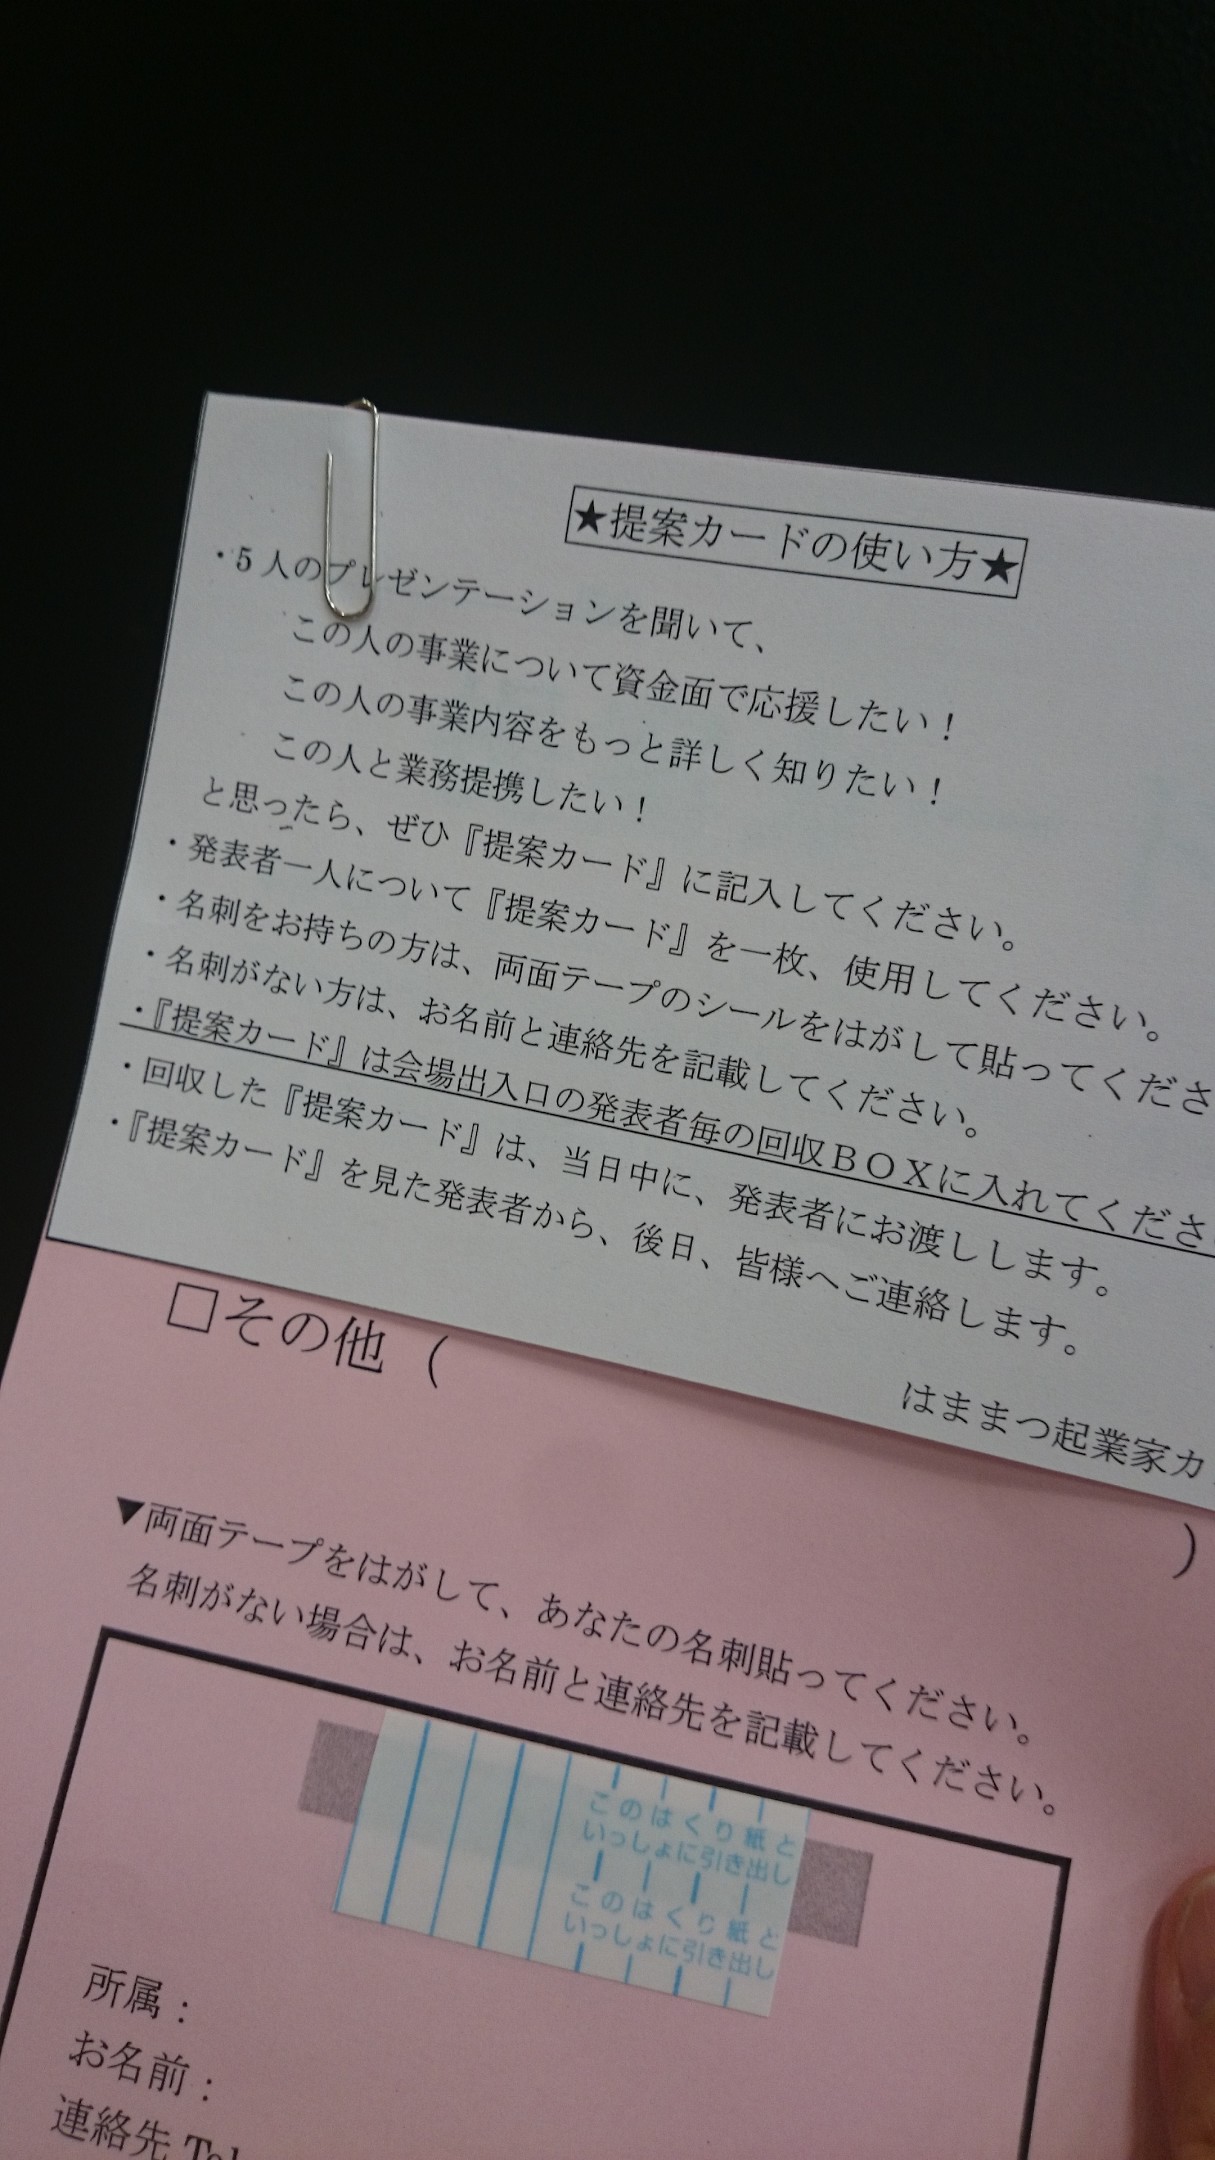 ★提案カードの使い方★
・5人のプレゼンテーションを聞いて、
この人の事業について資金面で応援したい！
この人の事業内容をもっと詳しく知りたい！
この人と業務提携したい！
と思ったら、ぜひ『提案カード』に記入してください。
・発表者一人について『提案カード』を一枚、使用してください。
・名刺をお持ちの方は、両面テープのシールをはがして貼ってくださ
・名刺がない方は、お名前と連絡先を記載してください。
・『提案カード』は会場出入口の発表者毎の回収ＢＯＸに入れてくださ
・回収した『提案カード』は、当日中に、発表者にお渡しします。
・『提案カード』を見た発表者から、後日、皆様へご連絡します。
はままつ起業家カ
□その他（
）
▼両面テープをはがして、あなたの名刺貼ってください。
名刺がない場合は、お名前と連絡先を記載してください。
このはくり紙と
いっしょに引き出し
このはくり紙と
いっしょに引き出し
所属：
お名前：
連絡先 Tel